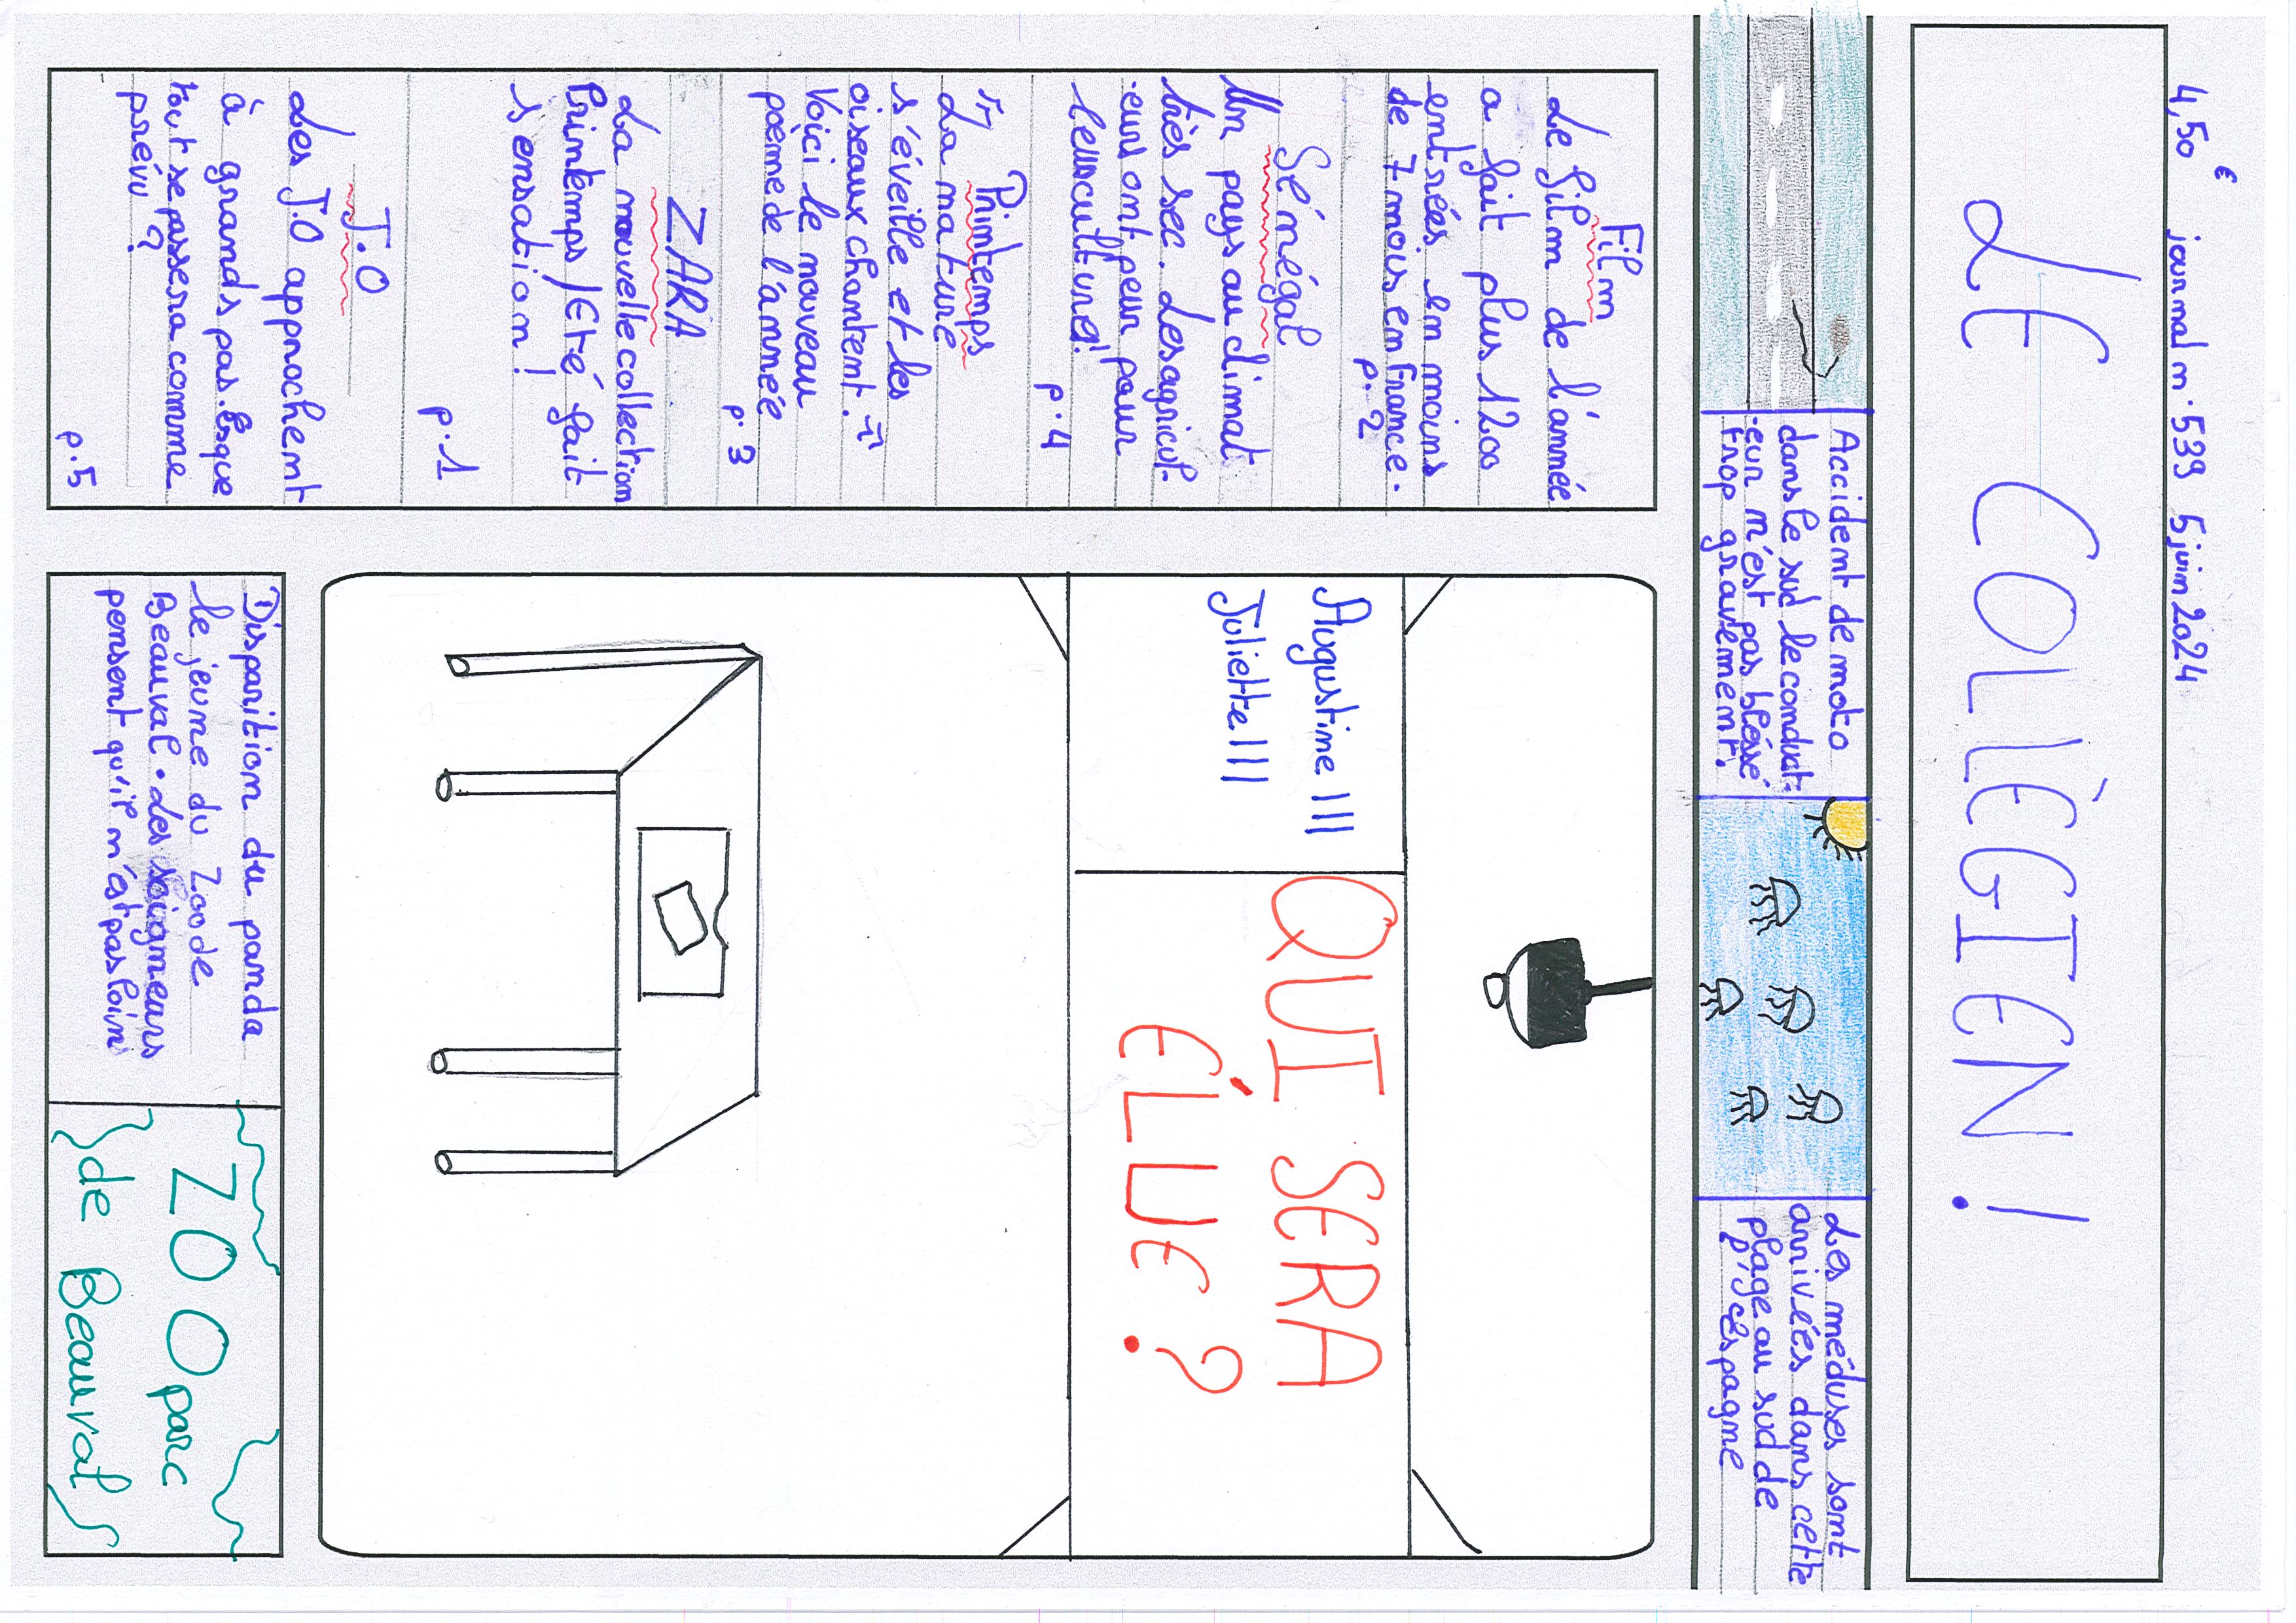 4,50 € journal n°539 5 juin 2024
LE COLLÈGIEN !
Accident de moto
dans le sud le conduct-
-eur n'est pas bléssé
trop gravement.
Les méduses sont
arrivées dans cette
plage au sud de
l'éspagne
Film
Le film de l'année
a fait plus 1200
entrées en moins
de 7 mois en France.
p. 2
Sénégal
Un pays au climat
très sec. Les agricul-
-eurs ont peur pour
leurs cultures!
p. 4
Printemps
"La nature
s'éveille et les
oiseaux chantent."
Voiçi le nouveau
poème de l'année
p. 3
ZARA
La nouvelle collection
Printemps/Eté fait
sensation !
p. 1
J.O
Les J.O approchent
à grands pas. Esque
tout se passera comme
prévu ?
p. 5
Augustine III
Juliette IIII
QUI SERA
ÉLUE ?
Disparition du panda
le jeune du Zoo de
Beauval. Les soigneurs
pensent qu'il n'est pas loin
ZOO parc
de Beauval